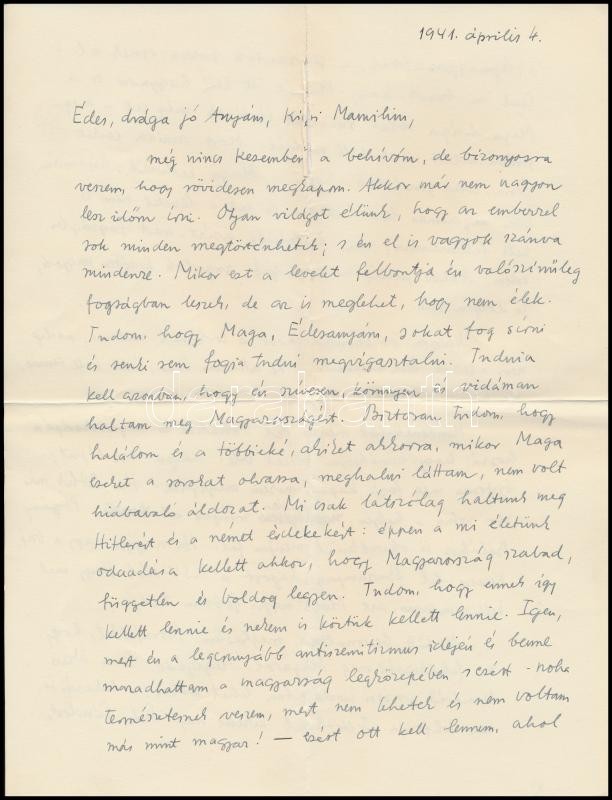 1941. április 4.
Édes, drága jó Anyám, Kicsi Mamilim,
még nincs kezemben a behívóm, de bizonyosra
veszem, hogy rövidesen megkapom. Akkor már nem nagyon
lesz időm írni. Olyan világot élünk, hogy az emberrel
sok minden megtörténhetik; s én el is vagyok szánva
mindenre. Mikor ezt a levelet felbontja én valószínűleg
fogságban leszek, de az is meglehet, hogy nem élek.
Tudom, hogy Maga, Édesanyám, sokat fog sírni
és senki sem fogja tudni megvigasztalni. Tudnia
kell azonban, hogy én szívesen, könnyen és vidáman
haltam meg Magyarországért. Biztosan tudom, hogy
halálom és a többieké, akiket akkorra, mikor Maga
ezeket a sorokat olvassa, meghalni láttam, nem volt
hiábavaló áldozat. Mi csak látszólag haltunk meg
Hitlerért és a német érdekekért: éppen a mi életünk
odaadása kellett akkor, hogy Magyarország szabad,
független és boldog legyen. Tudom, hogy ennek így
kellett lennie és nekem is köztük kellett lennie. Igen,
mert én a legcsunyább antiszemitizmus idején és benne
maradhattam a magyarság legközepében s ezért - noha
természetesnek veszem, mert nem lehetek és nem voltam
más mint magyar! — ezért ott kell lennem, ahol
darabanth